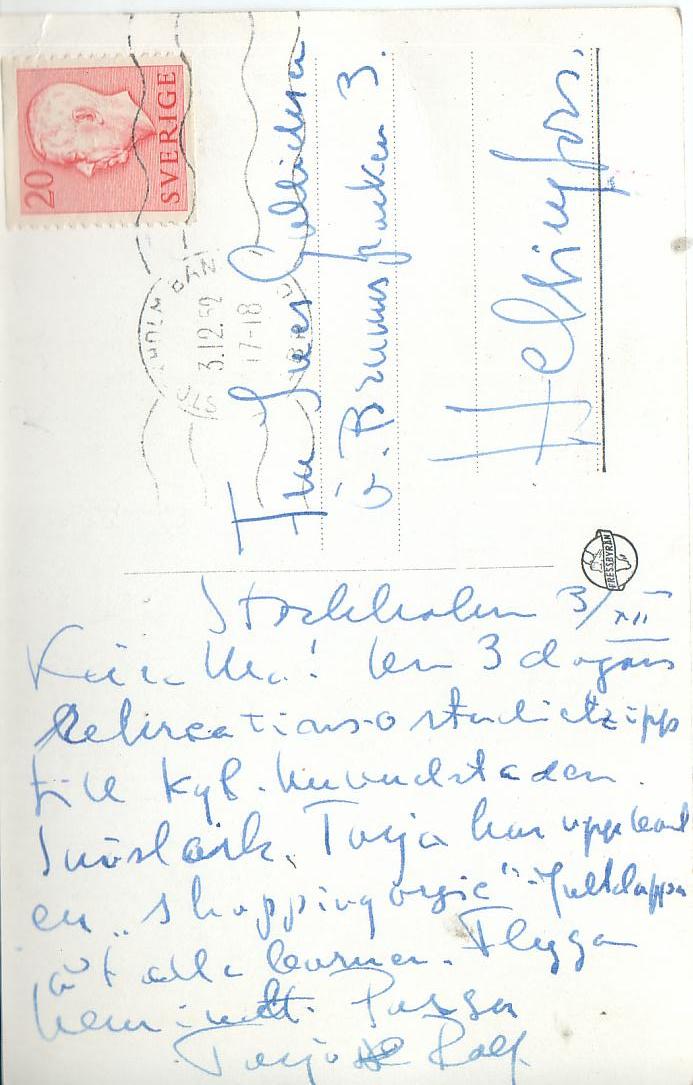 20
SVERIGE
STOCKHOLM BAN
3.12.52
17-18
Fru Ines
ö. Brunnsparken 3.
Helsingfors.
PRESSBYRÅN
Stockholm 3/XII
Kära ! En 3 dagars
Rekreations- o studietripp
till Kgl. huvudstaden.
Snöslask. Tarja har upplevat
en „shoppingorgie" - Julklappar
åt alla barnen. Flyga
hem
Tarja o Ralf